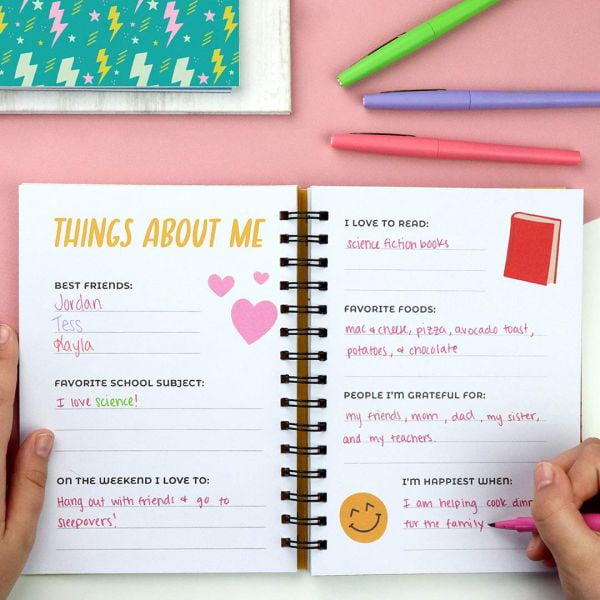 THINGS ABOUT ME
BEST FRIENDS:
Jordan
Tess
Kayla
FAVORITE SCHOOL SUBJECT:
I love science!
ON THE WEEKEND I LOVE TO:
Hang out with friends & go to
sleepovers!
I LOVE TO READ:
science fiction books
FAVORITE FOODS:
mac & cheese, pizza, avocado toast,
potatoes, & chocolate
PEOPLE I'M GRATEFUL FOR:
my friends, mom, dad, my sister,
and my teachers.
I'M HAPPIEST WHEN:
I am helping cook
for the family